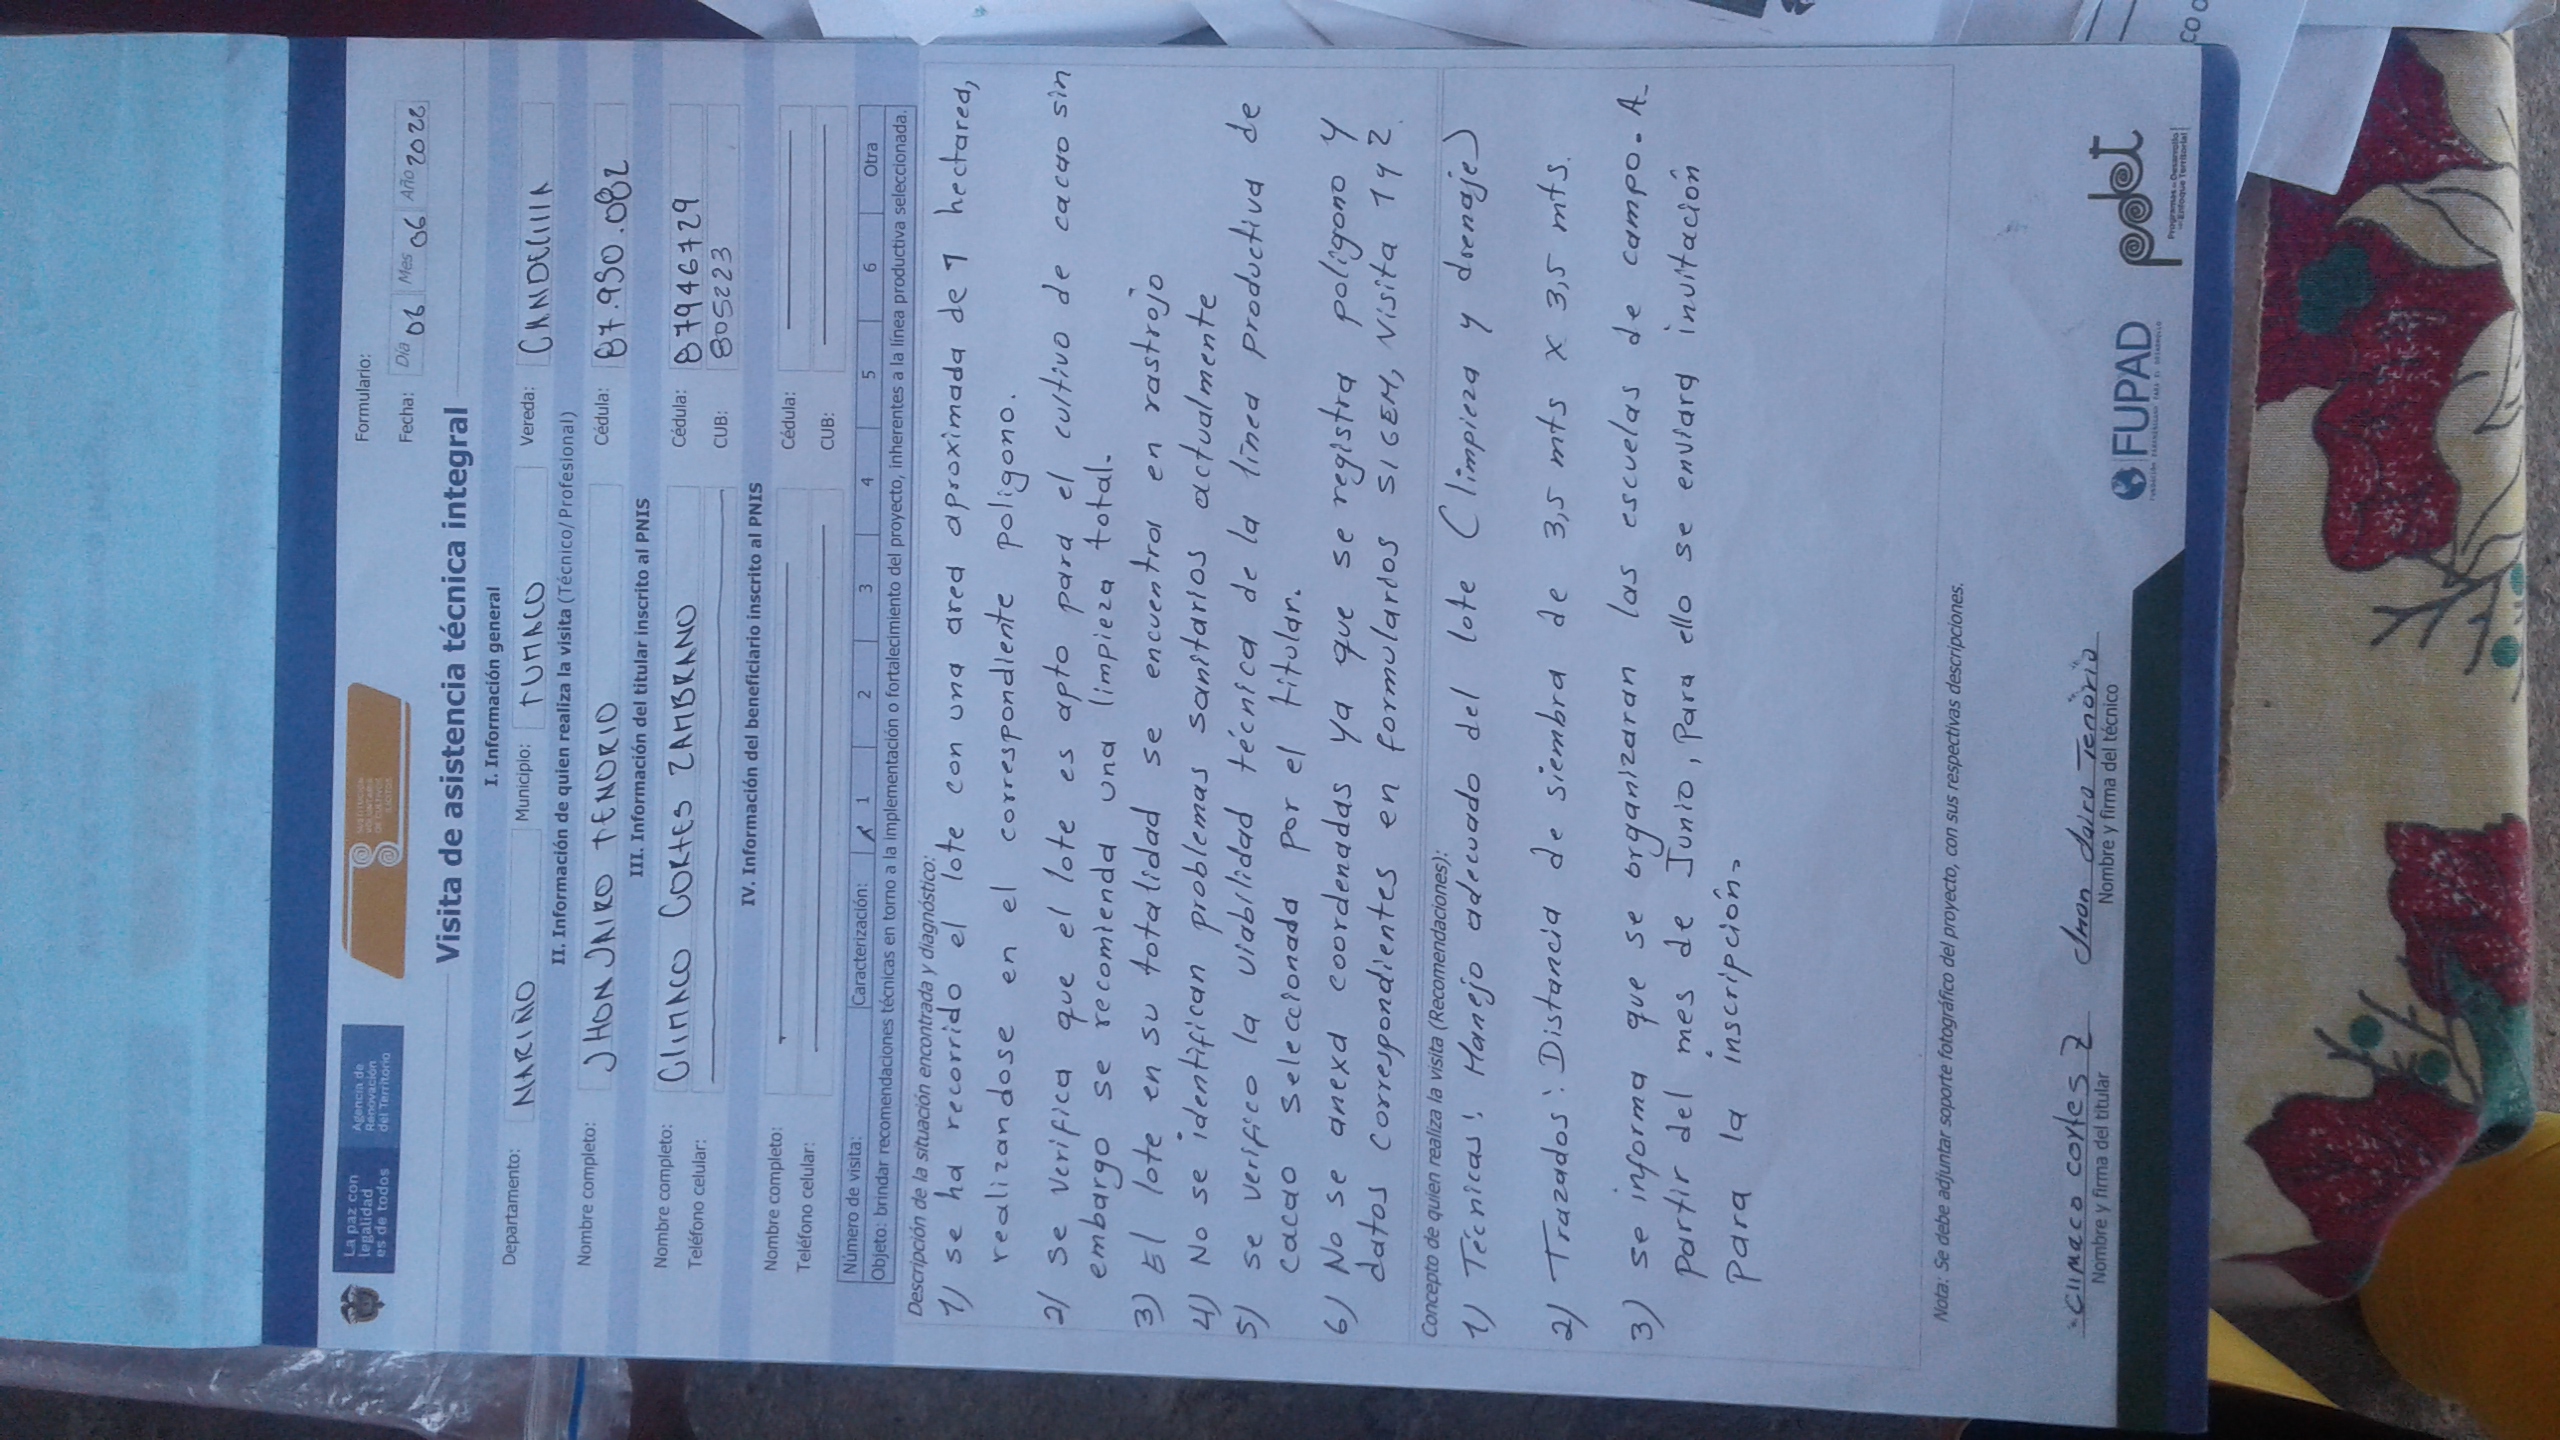 La paz con
legalidad
es de todos
Agencia de
Renovación
del Territorio
SUSTITUCIÓN
VOLUNTARIA
DE CULTIVOS
ILÍCITOS
Formulario:
Fecha: Día 06 Mes 06 Año 2022
Visita de asistencia técnica integral
I. Información general
Departamento: NARIÑO Municipio: TUMACO Vereda: CANDELILLA
II. Información de quien realiza la visita (Técnico/Profesional)
Nombre completo: JHON JAIRO TENORIO Cédula: 87.950.082
III. Información del titular inscrito al PNIS
Nombre completo: CLIMACO CORTES ZAMBRANO Cédula: 87946729
Teléfono celular: CUB: 805223
IV. Información del beneficiario inscrito al PNIS
Nombre completo: Cédula:
Teléfono celular: CUB:
Número de visita: Caracterización: X 1 2 3 4 5 6 Otra
Objeto: brindar recomendaciones técnicas en torno a la implementación o fortalecimiento del proyecto, inherentes a la línea productiva seleccionada.
Descripción de la situación encontrada y diagnóstico:
1) se ha recorrido el lote con una area aproximada de 1 hectarea,
realizandose en el correspondiente poligono.
2) Se verifica que el lote es apto para el cultivo de cacao sin
embargo se recomienda una limpieza total.
3) El lote en su totalidad se encuentra en rastrojo
4) No se identifican problemas sanitarios actualmente
5) se verifico la viabilidad técnica de la línea productiva de
cacao seleccionada por el titular.
6) No se anexa coordenadas ya que se registra poligono y
datos correspondientes en formularios SIGEM, Visita 1 y 2.
Concepto de quien realiza la visita (Recomendaciones):
1) Técnicas: Manejo adecuado del lote (limpieza y drenaje)
2) Trazados: Distancia de siembra de 3,5 mts x 3,5 mts.
3) se informa que se organizaran las escuelas de campo. A
Partir del mes de Junio, Para ello se enviara invitación
Para la inscripción.
Nota: Se debe adjuntar soporte fotográfico del proyecto, con sus respectivas descripciones.
Climaco cortes Z
Nombre y firma del titular
Jhon Jairo Tenorio
Nombre y firma del técnico
FUPAD
FUNDACIÓN PANAMERICANA PARA EL DESARROLLO
pdet
Programas de Desarrollo
con Enfoque Territorial